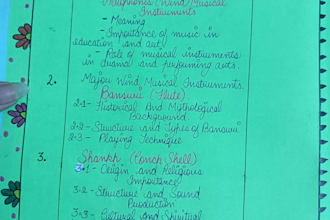 Aerophones (Wind) Musical
Instruments
- Meaning
- Importance of music in
education and art
- Role of musical instruments
in drama and performing arts.
2. Major Wind Musical Instruments.
Bansuri (Flute)
2.1 - Historical And Mythological
Background
2.2 - Structure and Types of Bansuri
2.3 - Playing Technique
3. Shankh (Conch Shell)
3.1 - Origin and Religious
Importance
3.2 - Structure and Sound
Production
3.3 - Cultural and Spiritual